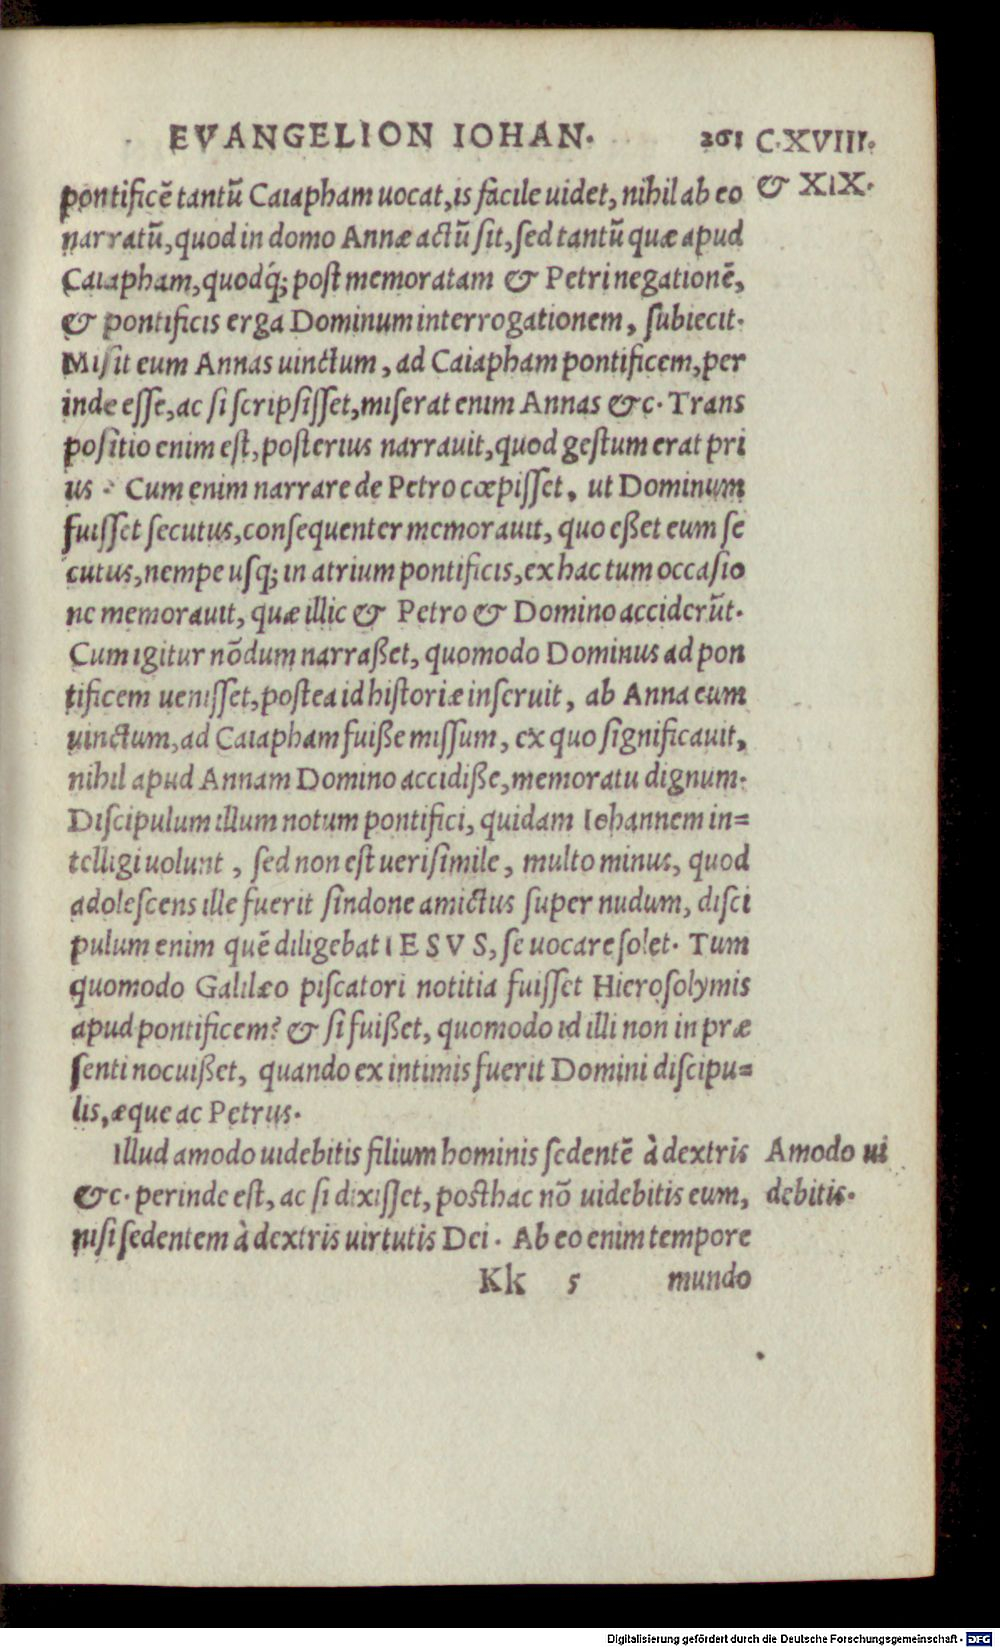 EVANGELION IOHAN. 261 C.XVIII.
& XIX.
pontificē tantū Caiapham uocat, is facile uidet, nihil ab eo
narratū, quod in domo Annæ actū sit, sed tantū quæ apud
Caiapham, quodq́; post memoratam & Petri negationē,
& pontificis erga Dominum interrogationem, subiecit.
Misit eum Annas uinctum, ad Caiapham pontificem, per
inde esse, ac si scripsisset, miserat enim Annas &c. Trans
positio enim est, posterius narrauit, quod gestum erat pri
us. Cum enim narrare de Petro cœpisset, ut Dominum
fuisset secutus, consequenter memorauit, quo eßet eum se
cutus, nempe usq; in atrium pontificis, ex hac tum occasio
ne memorauit, quæ illic & Petro & Domino acciderūt.
Cum igitur nōdum narraßet, quomodo Dominus ad pon
tificem uenisset, postea id historiæ inseruit, ab Anna eum
uinctum, ad Caiapham fuiße missum, ex quo significauit,
nihil apud Annam Domino accidiße, memoratu dignum.
Discipulum illum notum pontifici, quidam Iohannem in=
telligi uolunt, sed non est uerisimile, multo minus, quod
adolescens ille fuerit sindone amictus super nudum, disci
pulum enim quē diligebat IESVS, se uocare solet. Tum
quomodo Galilæo piscatori notitia fuisset Hierosolymis
apud pontificem? & si fuißet, quomodo id illi non in præ
senti nocuißet, quando ex intimis fuerit Domini discipu=
lis, æque ac Petrus.
Illud amodo uidebitis filium hominis sedentē à dextris
&c. perinde est, ac si dixisset, posthac nō uidebitis eum,
nisi sedentem à dextris uirtutis Dei. Ab eo enim tempore
Amodo ui
debitis.
Kk 5 mundo
Digitalisierung gefördert durch die Deutsche Forschungsgemeinschaft - DFG